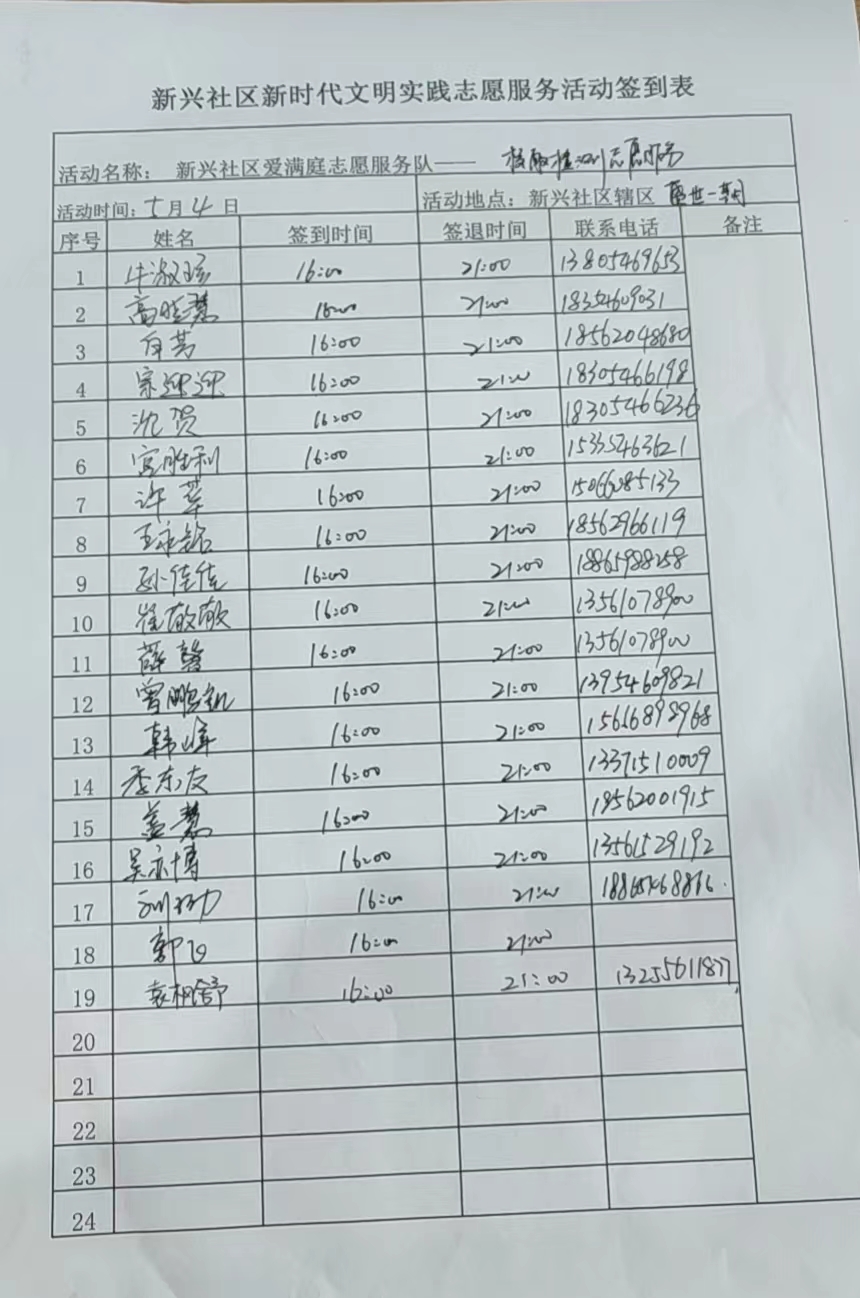 新兴社区新时代文明实践志愿服务活动签到表
活动名称： 新兴社区爱满庭志愿服务队—— 核酸检测志愿服务
活动时间：七月4日 活动地点：新兴社区辖区 盛世一期
序号 姓名 签到时间 签退时间 联系电话 备注
1 牛淑珍 16:00 21:00 13805469653
2 高晓慧 16:00 21:00 18354609031
3 白芸 16:00 21:00 18562048680
4 宗迎迎 16:00 21:00 18305466198
5 沈贺 16:00 21:00 18305466236
6 宫胜利 16:00 21:00 15335463621
7 许苹 16:00 21:00 15066085133
8 王永铭 16:00 21:00 18562966119
9 孙佳佳 16:00 21:00 18865988258
10 崔敬敬 16:00 21:00 13561078900
11 薛馨 16:00 21:00 13561078900
12 曾鹏凯 16:00 21:00 13954609821
13 韩峰 16:00 21:00 15616898968
14 季东友 16:00 21:00 13371510009
15 盖慧 16:00 21:00 18562001915
16 吴亦博 16:00 21:00 13561529192
17 16:00 21:00
18 郭飞 16:00 21:00
19 袁相舒 16:00 21:00 13255611877
20
21
22
23
24